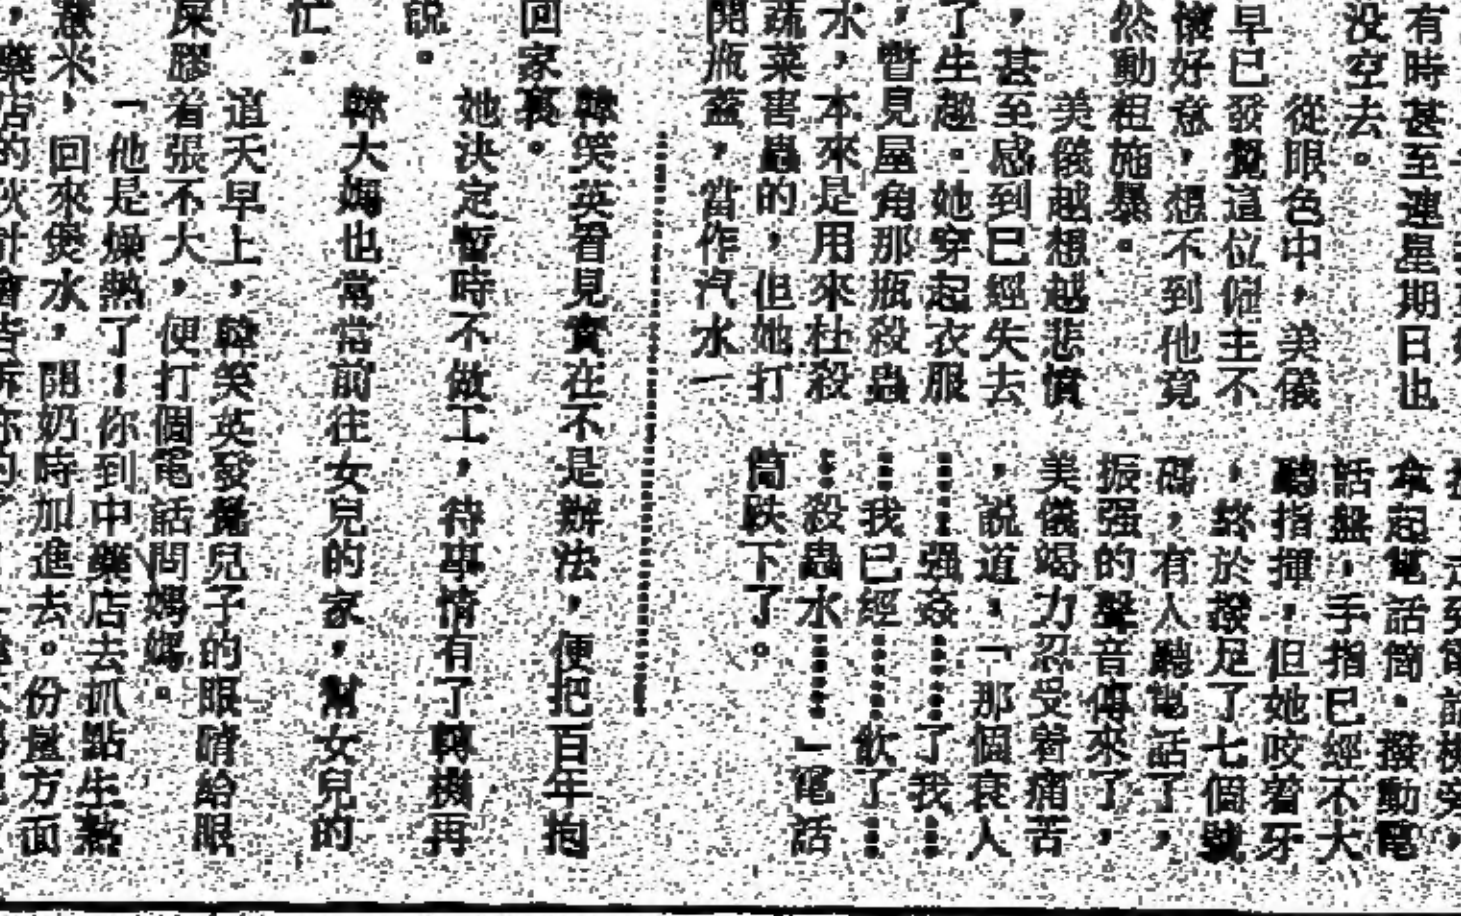 有時甚至連星期日也
没空去。
從眼色中，美儀
早已發覺這位僱主不
懷好意，想不到他竟
然動粗施暴。
美儀越想越悲憤
，甚至感到已經失去
了生趣。她穿起衣服
，瞥見屋角那瓶殺蟲
水，本來是用來杜殺
蔬菜害蟲的，但她打
開瓶蓋，當作汽水一
拿起電話筒。撥動電
話盤，手指已經不大
聽指揮，但她咬着牙
，終於撥足了七個號
碼，有人聽電話了，
振强的聲音傳來了，
美儀竭力忍受着痛苦
，説道，「那個衰人
……强姦……了我…
…我已經……飲了…
…殺蟲水……」電話
筒跌下了。
韓笑英看見實在不是辦法，便把百年抱
回家裏。
她決定暫時不做工，待事情有了轉機再
説。
韓大媽也常常前往女兒的家，幫女兒的
忙。
這天早上，韓笑英發覺兒子的眼睛給眼
屎膠着張不大，便打個電話問媽媽。
「他是燥熱了！你到中藥店去抓點生薏
薏米，回來煲水，開奶時加進去。份量方面